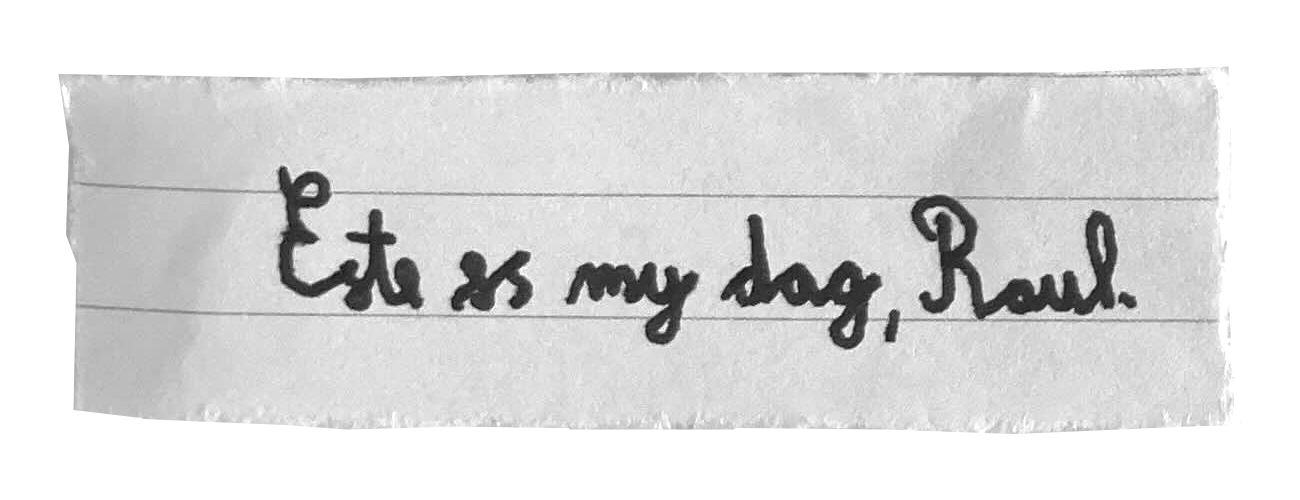 Este es my dog, Raul.